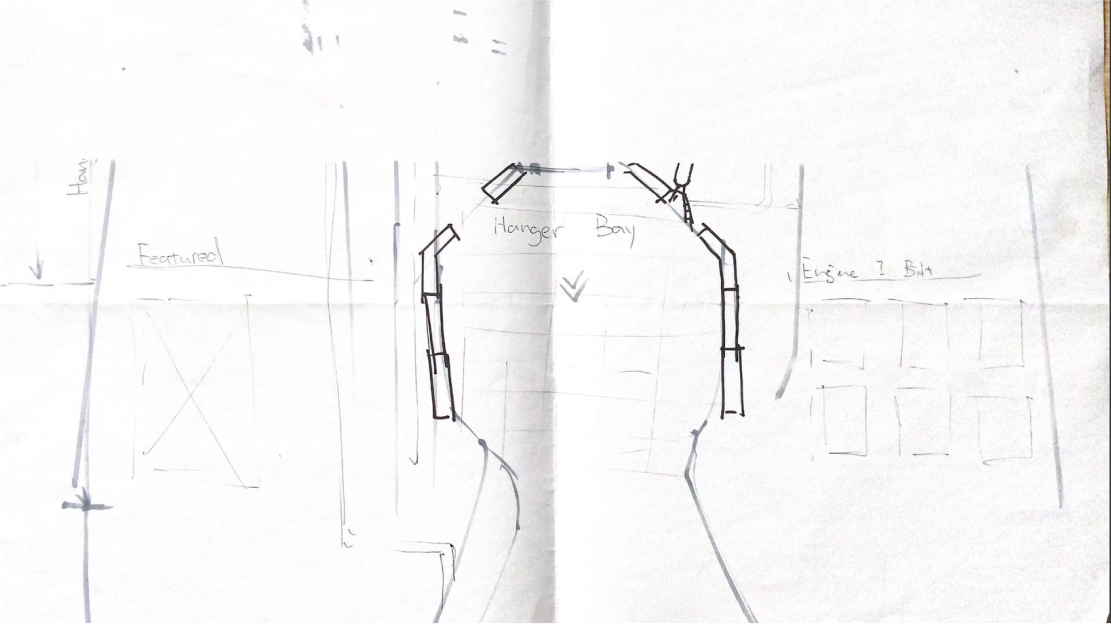 Featured
Hanger Bay
Engine I Bolt